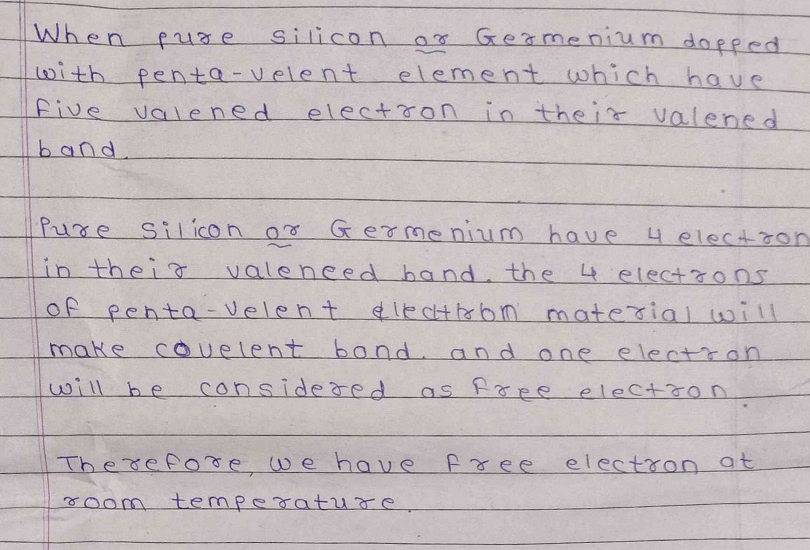 When pure silicon or Germenium dopped
with penta-velent element which have
five valened electron in their valened
band.
Pure silicon or Germenium have 4 electron
in their valeneed band. the 4 electrons
of penta-velent material will
make covelent bond. and one electron
will be considered as free electron.
Therefore, we have free electron at
room temperature.